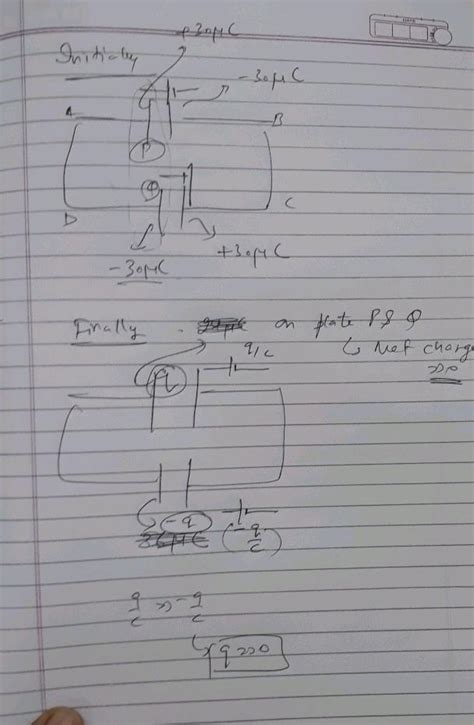 +30μC
Initially
-30μC
A B
P
Q
D C
-30μC +30μC
Finally on plate P & Q
q/c ↳ Net charge
=0
q
-q
(-q/c)
q/c = -q/c
q=0